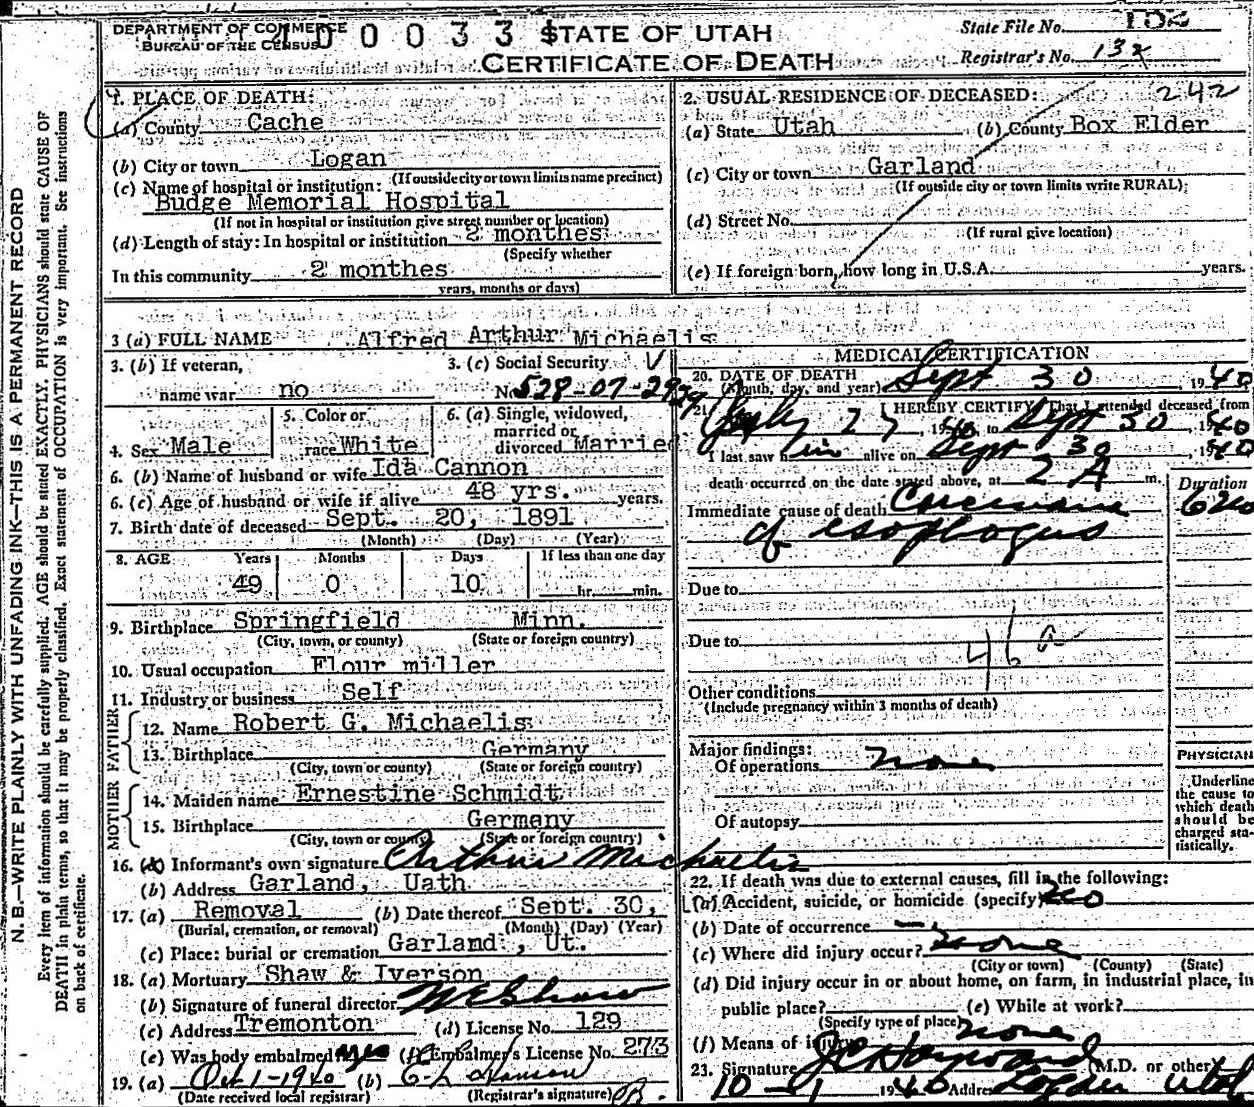 DEPARTMENT OF COMMERCE
BUREAU OF THE CENSUS
0 0 3 3
STATE OF UTAH
CERTIFICATE OF DEATH
State File No.
Registrar's No. 132
242
N. B.—WRITE PLAINLY WITH UNFADING INK—THIS IS A PERMANENT RECORD
Every item of information should be carefully supplied. AGE should be stated EXACTLY. PHYSICIANS should state CAUSE OF
DEATH in plain terms, so that it may be properly classified. Exact statement of OCCUPATION is very important. See instructions
on back of certificate.
1. PLACE OF DEATH:
(a) County Cache
(b) City or town Logan
(If outside city or town limits name precinct)
(c) Name of hospital or institution:
Budge Memorial Hospital
(If not in hospital or institution give street number or location)
(d) Length of stay: In hospital or institution 2 monthes
(Specify whether
In this community 2 monthes
years, months or days)
2. USUAL RESIDENCE OF DECEASED:
(a) State Utah (b) County Box Elder
(c) City or town Garland
(If outside city or town limits write RURAL)
(d) Street No.
(If rural give location)
(e) If foreign born, how long in U.S.A. years.
3 (a) FULL NAME Alfred Arthur Michaelis
3. (b) If veteran,
name war no
3. (c) Social Security
No. 528-07-2929
4. Sex Male
5. Color or
race White
6. (a) Single, widowed,
married or
divorced Married
6. (b) Name of husband or wife Ida Cannon
6. (c) Age of husband or wife if alive 48 yrs. years.
7. Birth date of deceased Sept. 20, 1891
(Month) (Day) (Year)
8. AGE Years Months Days If less than one day
49 0 10 hr. min.
9. Birthplace Springfield Minn.
(City, town, or county) (State or foreign country)
10. Usual occupation Flour miller
11. Industry or business Self
FATHER
12. Name Robert G. Michaelis
13. Birthplace Germany
(City, town or county) (State or foreign country)
MOTHER
14. Maiden name Ernestine Schmidt
15. Birthplace Germany
(City, town or county) (State or foreign country)
16. (a) Informant's own signature Arthur Michaelis
(b) Address Garland, Uath
17. (a) Removal (b) Date thereof Sept. 30,
(Burial, cremation, or removal) (Month) (Day) (Year)
(c) Place: burial or cremation Garland, Ut.
18. (a) Mortuary Shaw & Iverson
(b) Signature of funeral director M E Shaw
(c) Address Tremonton (d) License No. 129
(e) Was body embalmed yes (f) Embalmer's License No. 273
19. (a) Oct 1-1940 (b)
(Date received local registrar) (Registrar's signature)
MEDICAL CERTIFICATION
20. DATE OF DEATH
(Month, day, and year) Sept 30 1940
21. I HEREBY CERTIFY, That I attended deceased from
July 27, 1940, to Sept 30, 1940
I last saw him alive on Sept 30, 1940
death occurred on the date stated above, at 2 A m.
Duration
Immediate cause of death Carcinoma
of esophogus
Due to
Due to
46 a
Other conditions
(Include pregnancy within 3 months of death)
Major findings:
Of operations none
Of autopsy
PHYSICIAN
Underline
the cause to
which death
should be
charged sta-
tistically.
22. If death was due to external causes, fill in the following:
(a) Accident, suicide, or homicide (specify) no
(b) Date of occurrence —
(c) Where did injury occur? none
(City or town) (County) (State)
(d) Did injury occur in or about home, on farm, in industrial place, in
public place? (e) While at work?
(Specify type of place)
(f) Means of injury none
23. Signature J C Hayward (M.D. or other)
10-1 1940 Address Logan Utah